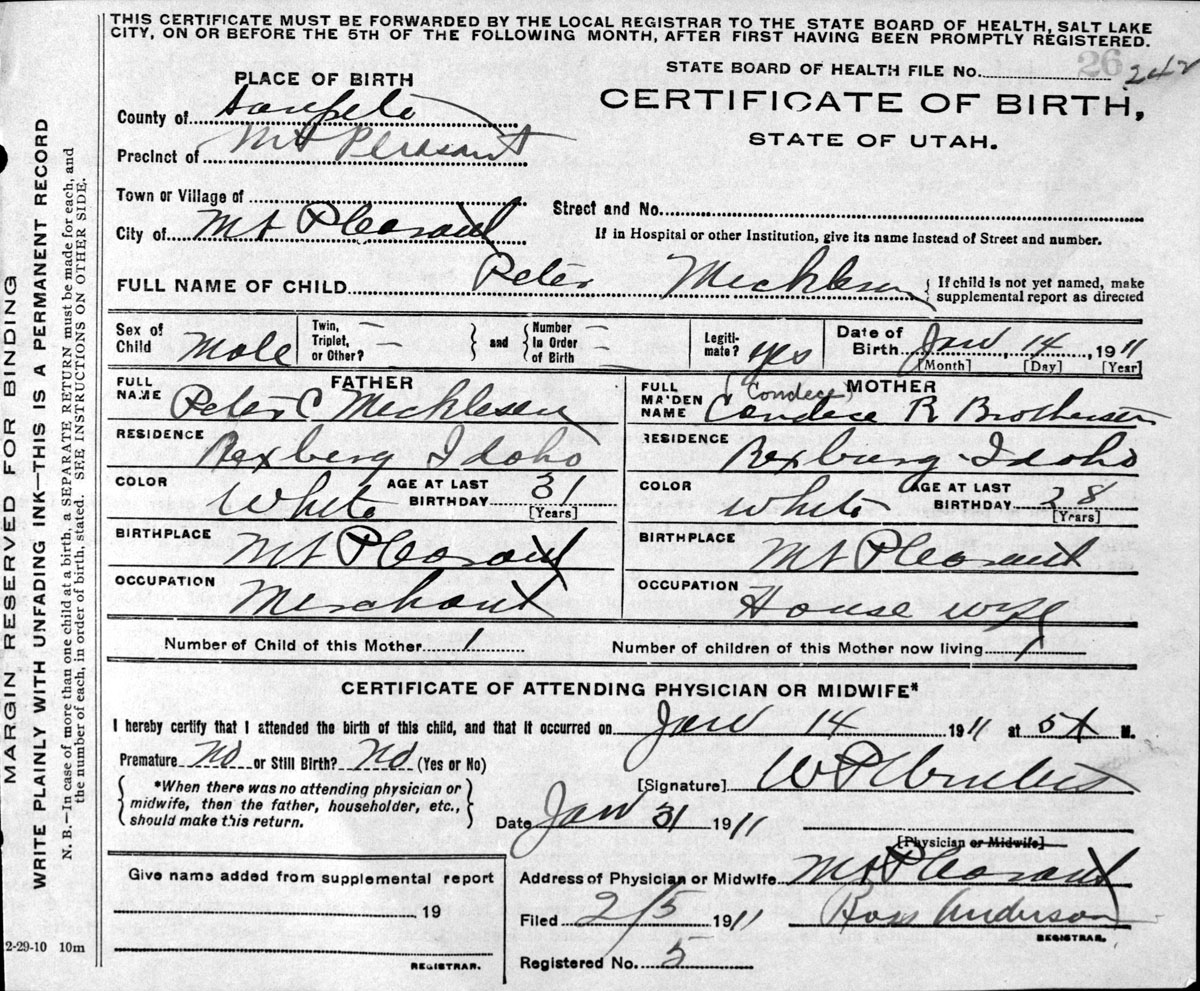 THIS CERTIFICATE MUST BE FORWARDED BY THE LOCAL REGISTRAR TO THE STATE BOARD OF HEALTH, SALT LAKE
CITY, ON OR BEFORE THE 5TH OF THE FOLLOWING MONTH, AFTER FIRST HAVING BEEN PROMPTLY REGISTERED.
STATE BOARD OF HEALTH FILE No. 26 242
PLACE OF BIRTH
CERTIFICATE OF BIRTH,
STATE OF UTAH.
County of Sanpete
Precinct of Mt Pleasant
Town or Village of
Street and No.
City of Mt Pleasant
If in Hospital or other Institution, give its name instead of Street and number.
FULL NAME OF CHILD Peter Micklesen { If child is not yet named, make supplemental report as directed
Sex of Child Male
Twin, Triplet, or Other? — — } and { Number in Order of Birth — —
Legitimate? yes
Date of Birth Jan, 14, 1911
[Month] [Day] [Year]
FATHER
FULL NAME Peter C Micklesen
RESIDENCE Rexberg Idaho
COLOR White AGE AT LAST BIRTHDAY 31
[Years]
BIRTHPLACE Mt Pleasant
OCCUPATION Merchant
MOTHER
FULL MAIDEN NAME Candace R Brotherson
RESIDENCE Rexburg Idaho
COLOR White AGE AT LAST BIRTHDAY 28
[Years]
BIRTHPLACE Mt Pleasant
OCCUPATION House wife
Number of Child of this Mother 1 Number of children of this Mother now living 1
CERTIFICATE OF ATTENDING PHYSICIAN OR MIDWIFE*
I hereby certify that I attended the birth of this child, and that it occurred on Jan 14 1911 at 5 A M.
Premature No or Still Birth? No (Yes or No)
{ *When there was no attending physician or
midwife, then the father, householder, etc.,
should make this return. }
[Signature]
Date Jan 31 1911
[Physician or Midwife]
Give name added from supplemental report
19
REGISTRAR.
Address of Physician or Midwife Mt Pleasant
Filed 2/5 1911 Ross Anderson
REGISTRAR.
Registered No. 5
2-29-10 10m
MARGIN RESERVED FOR BINDING
WRITE PLAINLY WITH UNFADING INK—THIS IS A PERMANENT RECORD
N. B.—In case of more than one child at a birth, a SEPARATE RETURN must be made for each, and
the number of each, in order of birth, stated. SEE INSTRUCTIONS ON OTHER SIDE.